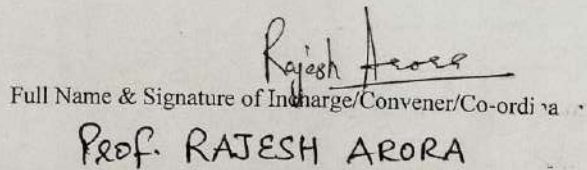 Rajesh Arora
Full Name & Signature of Incharge/Convener/Co-ordi a
Prof. RAJESH ARORA